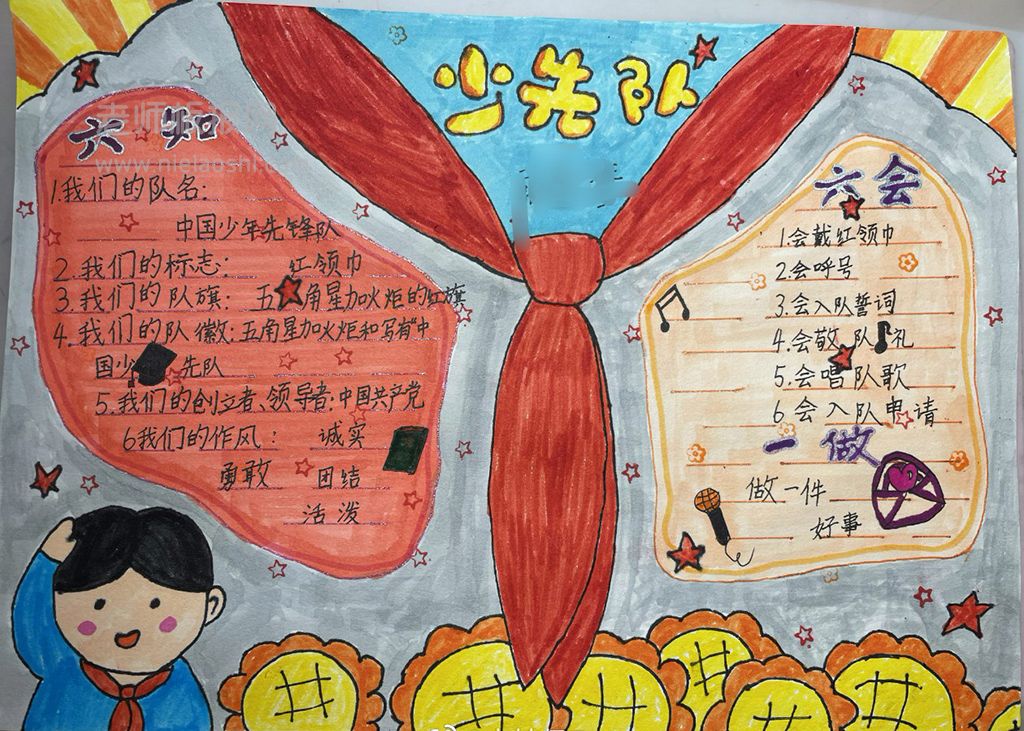 少先队
六知
1.我们的队名:
中国少年先锋队
2.我们的标志: 红领巾
3.我们的队旗: 五角星加火炬的红旗
4.我们的队徽:五角星加火炬和写有"中
国少先队
5.我们的创立者、领导者:中国共产党
6我们的作风: 诚实
勇敢 团结
活泼
六会
1.会戴红领巾
2.会呼号
3.会入队誓词
4.会敬队礼
5.会唱队歌
6.会入队申请
一做
做一件
好事